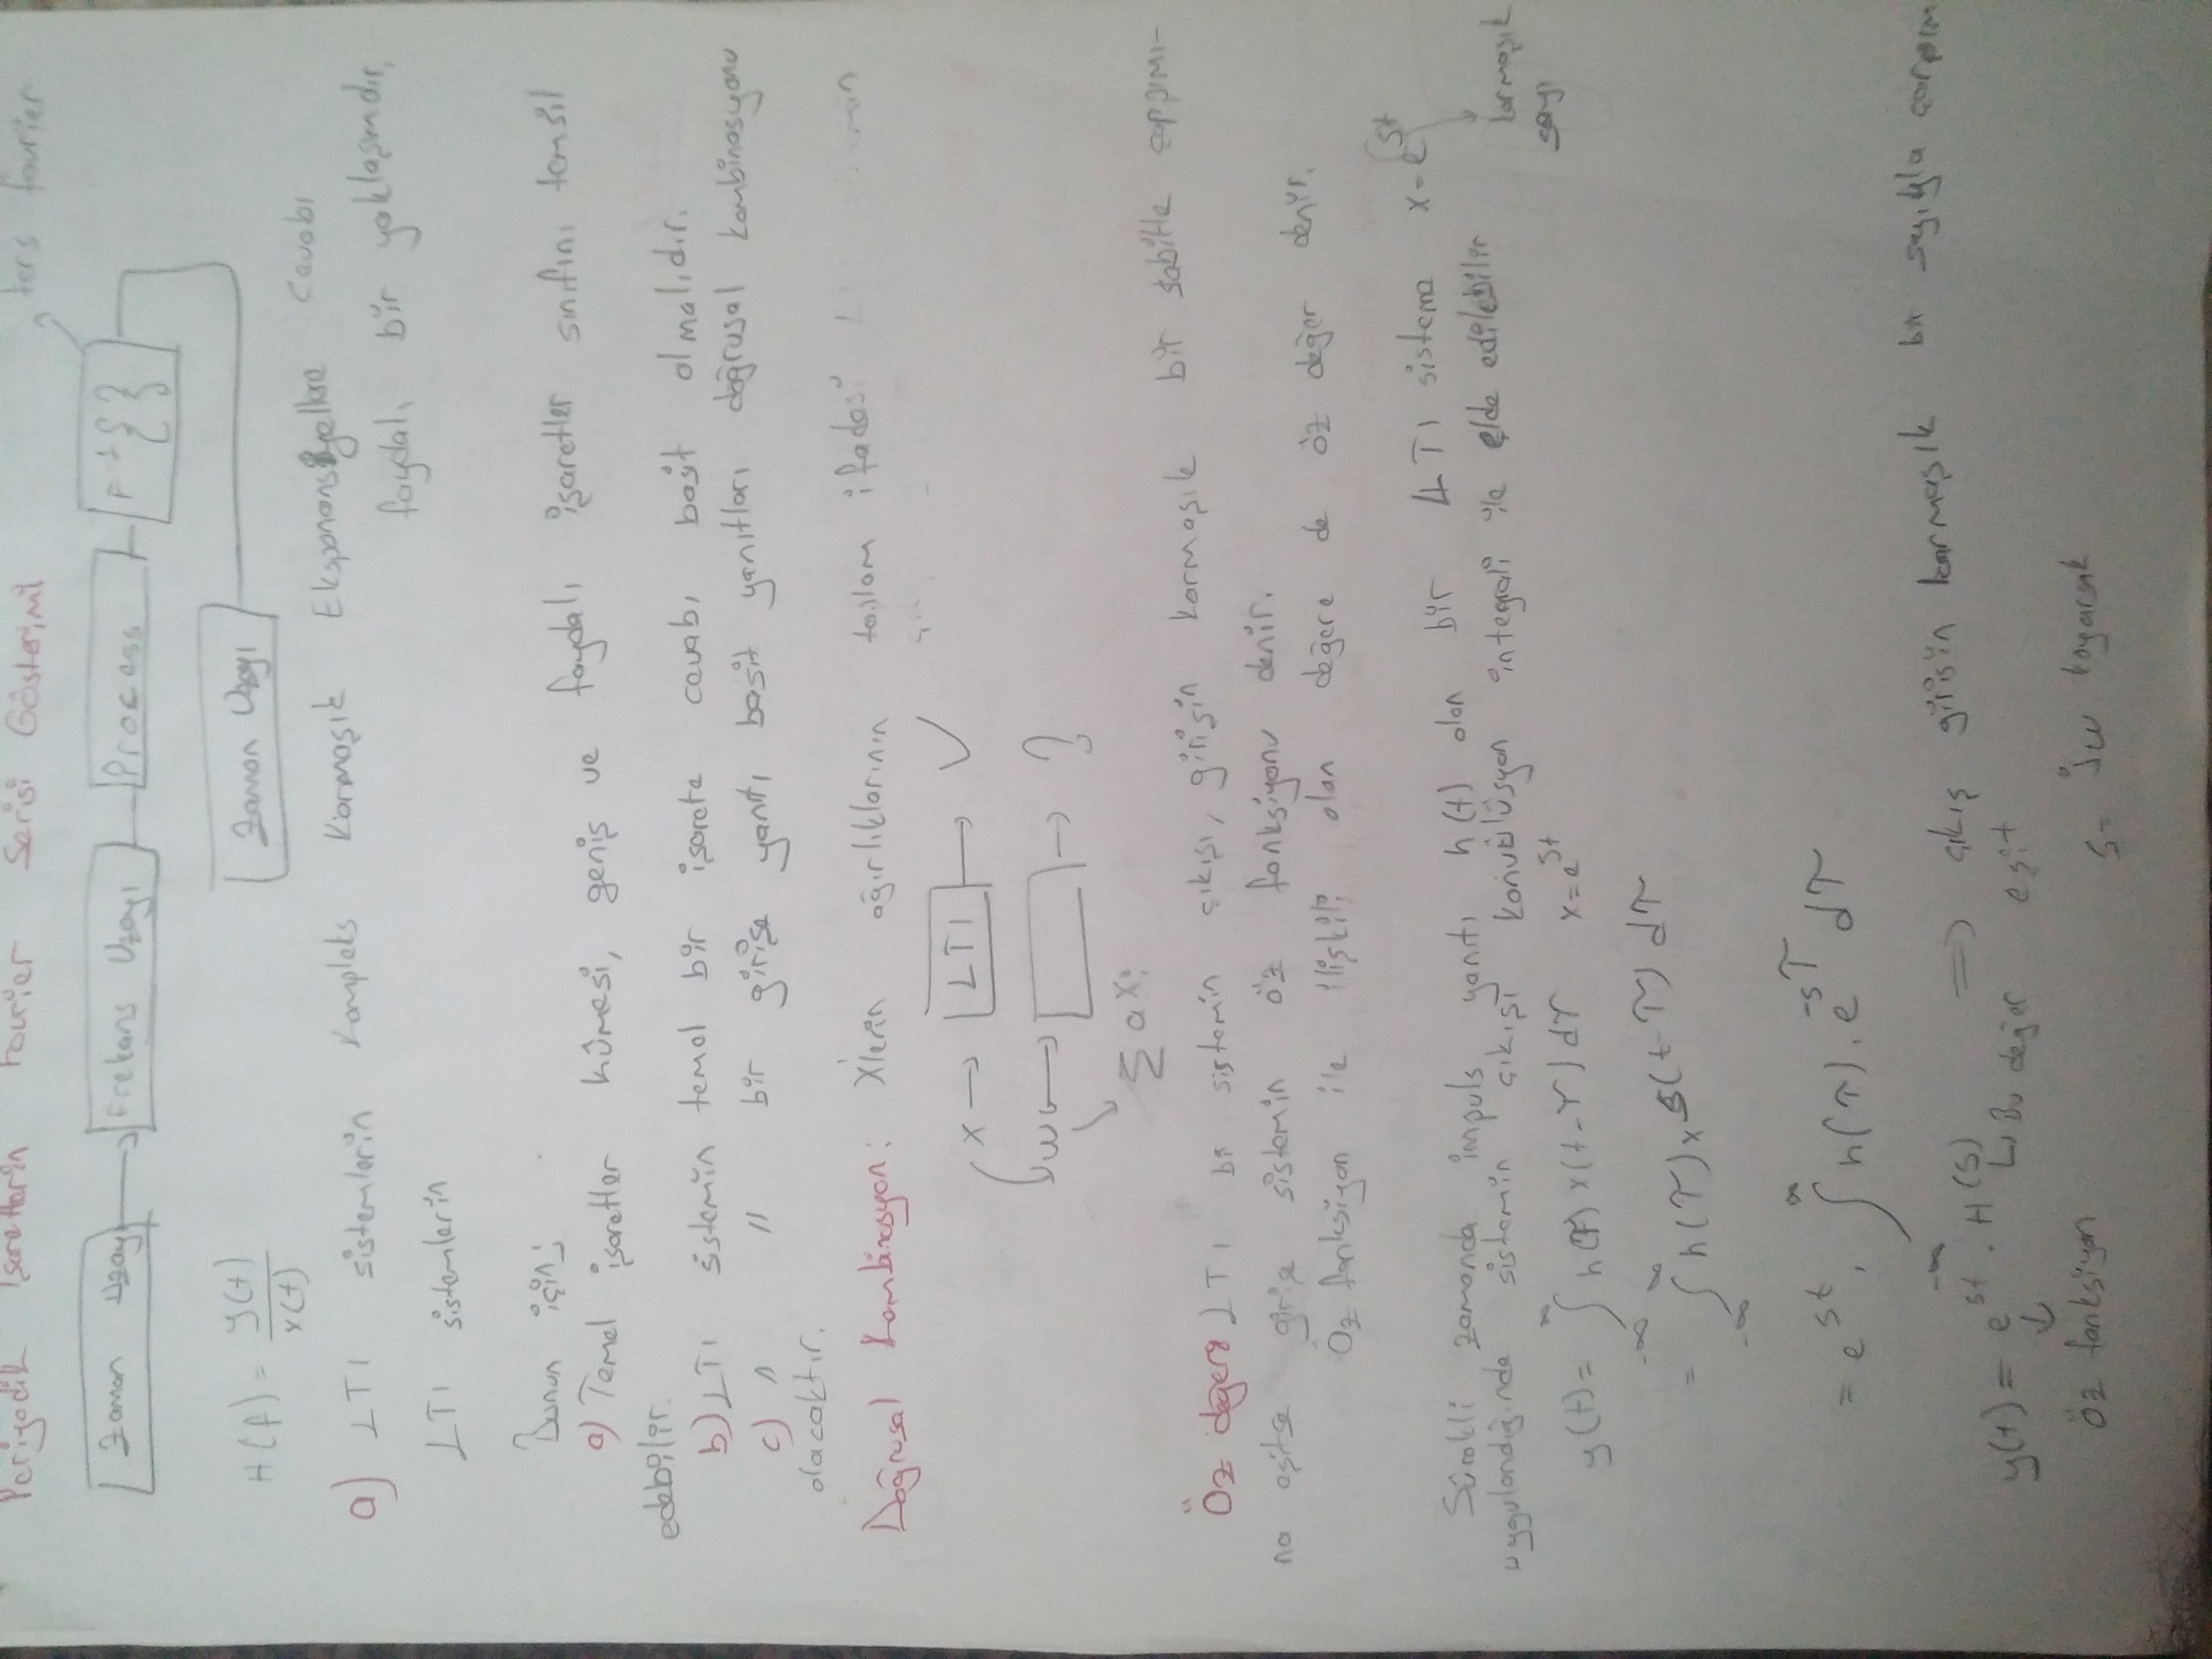 Periyodik İşaretlerin Fourier Serisi Gösterimi
ters fourier
Zaman Uzayı → Frekans Uzayı Process F⁻¹{ }
Zaman Uzayı
H(f) = y(t) / x(t)
a) LTI sistemlerin Kompleks Karmaşık Eksponansiyellere Cevabı
LTI sistemlerin faydalı bir yaklaşımdır.
Bunun için;
a) Temel işaretler kümesi, geniş ve faydalı işaretler sınıfını temsil
edebilir.
b) LTI sistemin temel bir işarete cevabı basit olmalıdır.
c) " " bir girişe yanıtı basit yanıtları doğrusal kombinasyonu
olacaktır.
Doğrusal Kombinasyon: x'lerin ağırlıklarının toplam ifadesi
x → LTI → ✓
→ →?
∑ a xi
Öz değer: LTI bir sistemin çıkışı, girişin karmaşık bir sabitle çarpımı-
na eşitse girişe sistemin öz fonksiyonu denir.
Öz fonksiyon ile ilişkili olan değere de öz değer denir.
Sürekli zamanda impuls yanıtı h(t) olan bir LTI sisteme x = e^st
uygulandığında sistemin çıkışı konvülüsyon integrali ile elde edilebilir
karmaşık
sayı
y(t) = ∫_{-∞}^{∞} h(τ) x(t-τ) dτ x = e^st
= ∫_{-∞}^{∞} h(τ) x s(t-τ) dτ
= e^st . ∫_{-∞}^{∞} h(τ). e^-sτ dτ
y(t) = e^st . H(s) ⇒ çıkış girişin karmaşık bir sayıyla çarpım
↳ Bu değer eşit
Öz fonksiyon
s = jw koyarsak